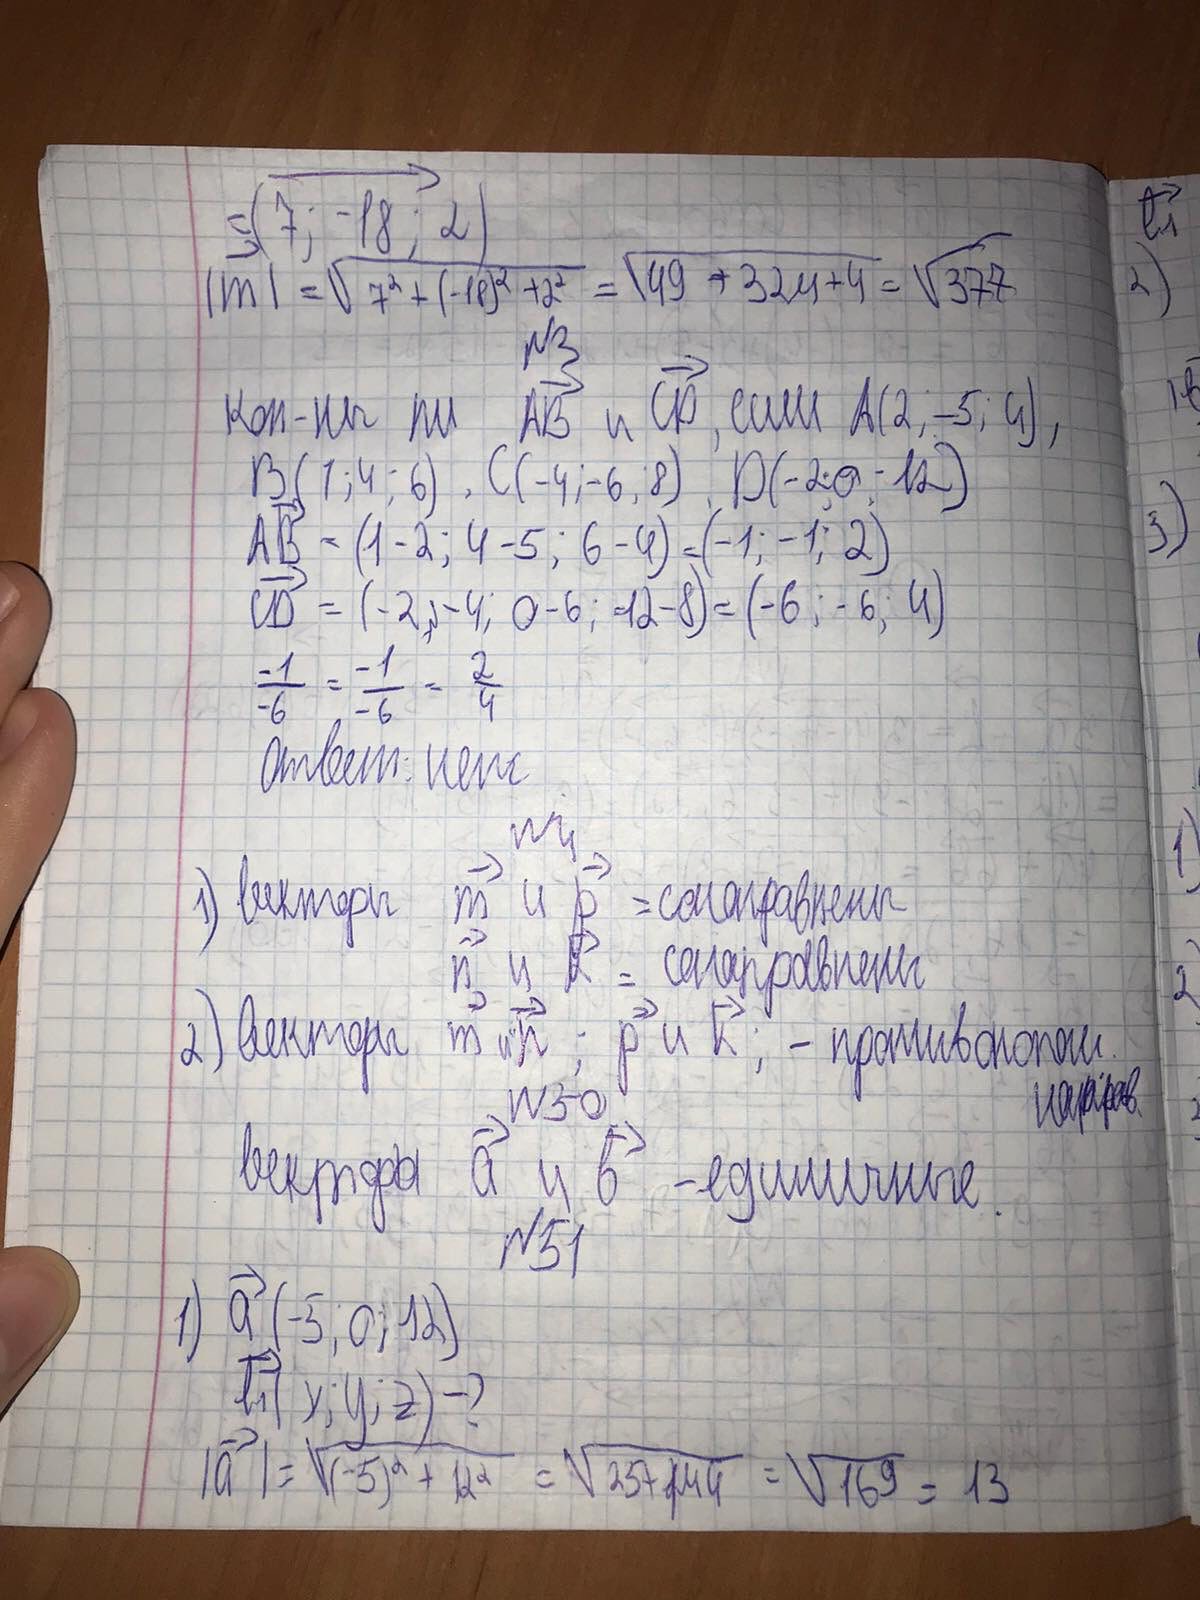 =(7; -18; 2)
|m| = √7² + (-18)² + 2² = √49 + 324 + 4 = √377
N3
Кол-ны ли AB и CD, если A(2; -5; 4),
B(1; 4; 6), C(-4; -6; 8), D(-2; 0; -12)
AB = (1-2; 4-5; 6-4) = (-1; -1; 2)
CD = (-2; -4; 0-6; -12-8) = (-6; -6; 4)
-1/-6 = -1/-6 = 2/4
Ответ: нет
N4
1) Векторы m и p = сонаправлены
n и k = сонаправлены
2) Векторы m и n; p и k; - противополож.
направ.
N50
Векторы a и b - единичные.
N51
1) a (-5; 0; 12)
l₁( x; y; z) - ?
|a| = √(-5)² + 12² = √25+144 = √169 = 13
l₁
2)
3)
1)
2)